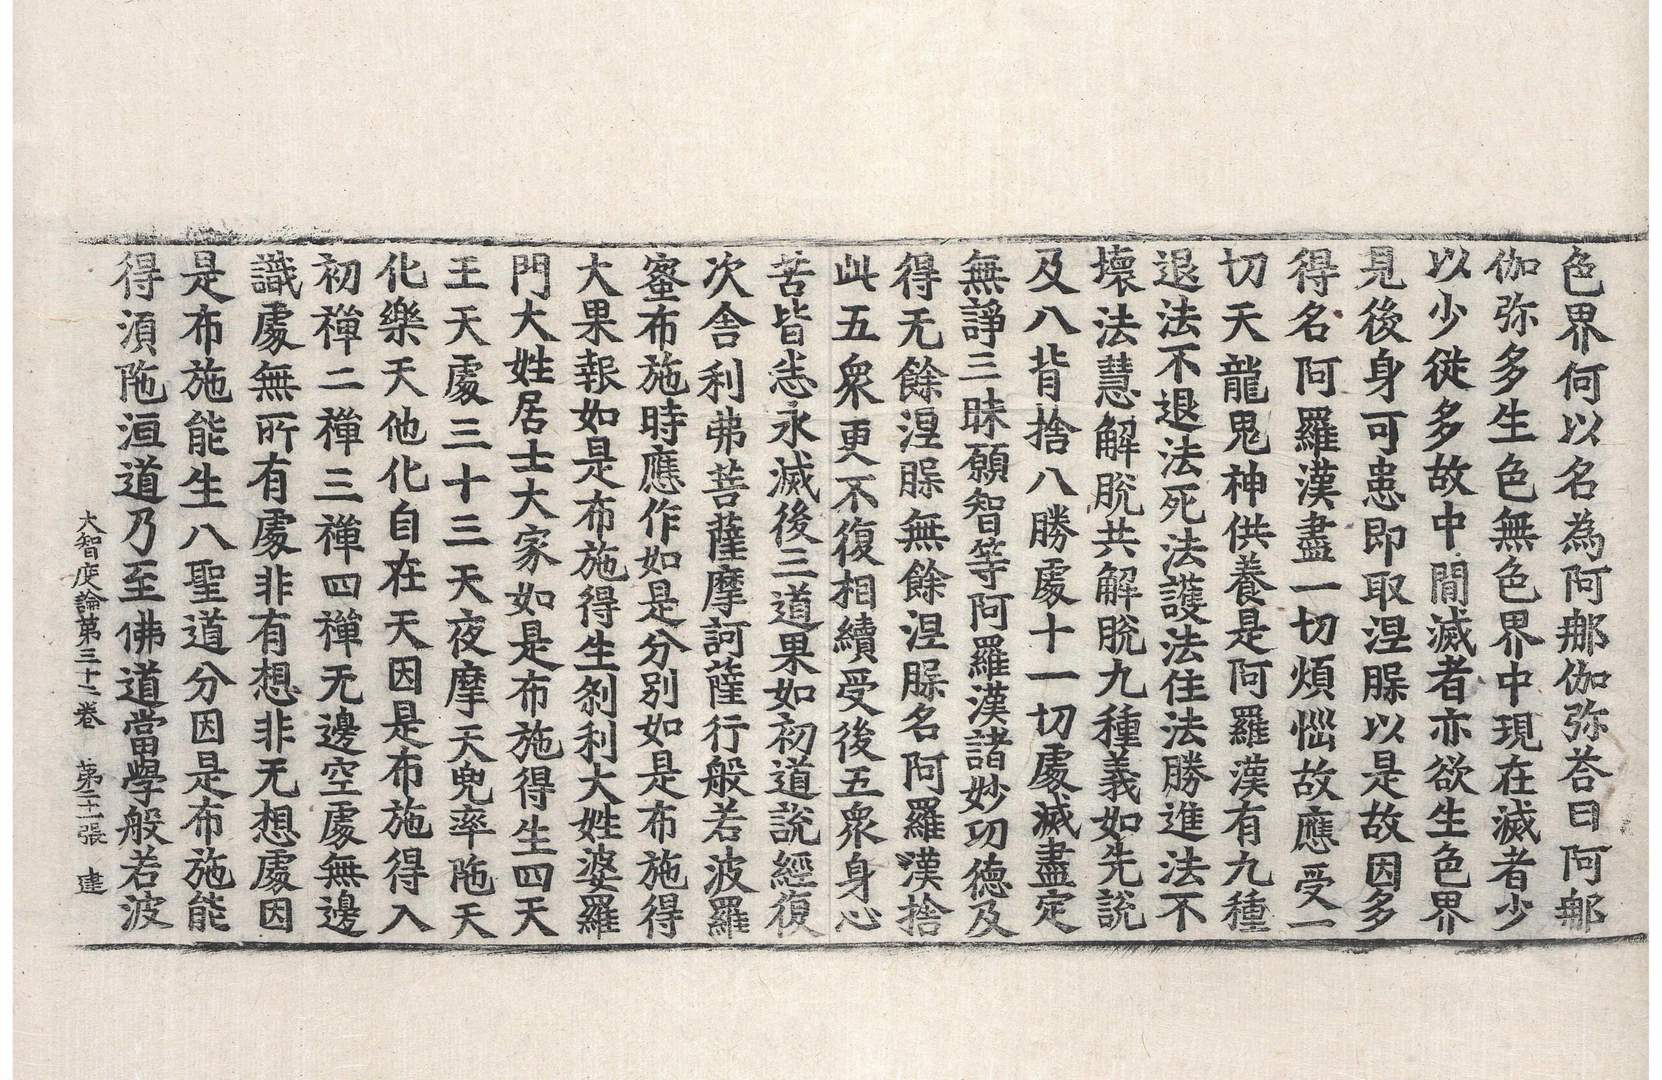 色界何以名為阿那伽弥荅曰阿那
伽弥多生色無色界中現在滅者少
以少從多故中間滅者亦欲生色界
見後身可患即取涅槃以是故因多
得名阿羅漢盡一切煩惱故應受一
切天龍鬼神供養是阿羅漢有九種
退法不退法死法護法住法勝進法不
壞法慧解脫共解脫九種義如先說
及八背捨八勝處十一切處滅盡定
無諍三昧願智等阿羅漢諸妙功德及
得无餘涅槃無餘涅槃名阿羅漢捨
此五衆更不復相續受後五衆身心
苦皆悉永滅後三道果如初道說經復
次舍利弗菩薩摩訶薩行般若波羅
蜜布施時應作如是分別如是布施得
大果報如是布施得生剎利大姓婆羅
門大姓居士大家如是布施得生四天
王天處三十三天夜摩天兜率陁天
化樂天他化自在天因是布施得入
初禪二禪三禪四禪无邊空處無邊
識處無所有處非有想非无想處因
是布施能生八聖道分因是布施能
得須陁洹道乃至佛道當學般若波
大智度論第三十二卷 第二十一張 建